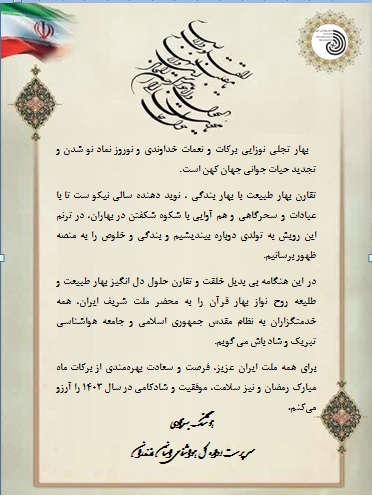 بهار تجلی نوزایی برکات و نعمات خداوندی و نوروز نماد نو شدن و
تجدید حیات جوانی جهان کهن است.
تقارن بهار طبیعت با بهار بندگی ، نوید دهنده سالی نیکو ست تا با
عبادات و سحرگاهی و هم آوایی با شکوه شکفتن در بهاران، در ترنم
این رویش به تولدی دوباره بیندیشیم و بندگی و خلوص را به منصه
ظهور برسانیم.
در این هنگامه بی بدیل خلقت و تقارن حلول دل انگیز بهار طبیعت و
طلیعه روح نواز بهار قرآن را به محضر ملت شریف ایران، همه
خدمتگزاران به نظام مقدس جمهوری اسلامی و جامعه هواشناسی
تبریک و شادباش می گویم.
برای همه ملت ایران عزیز، فرصت و سعادت بهره‌مندی از برکات ماه
مبارک رمضان و نیز سلامت، موفقیت و شادکامی در سال ۱۴۰۳ را آرزو
می‌کنم.
سرپرست اداره کل هواشناسی استان